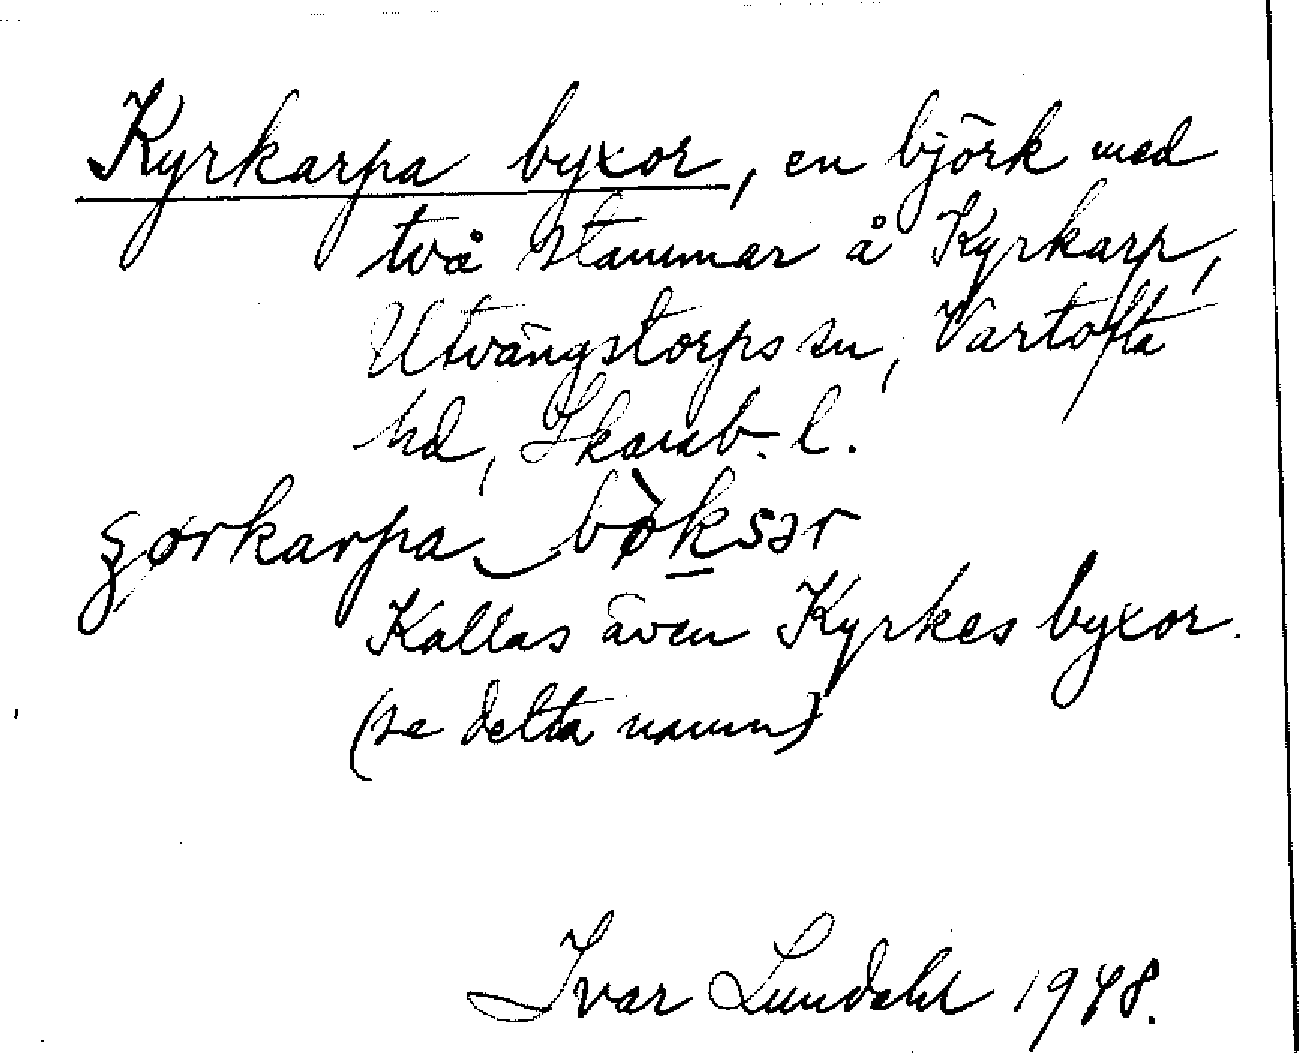 Kyrkarpa byxor, en björk med
två stammar å Kyrkarp,
Utvängstorps sn, Vartofta
hd, Skarab. l.
şørkarpa bø̀ksər
Kallas även Kyrkes byxor.
(se detta namn)
Ivar Lundahl 1948.